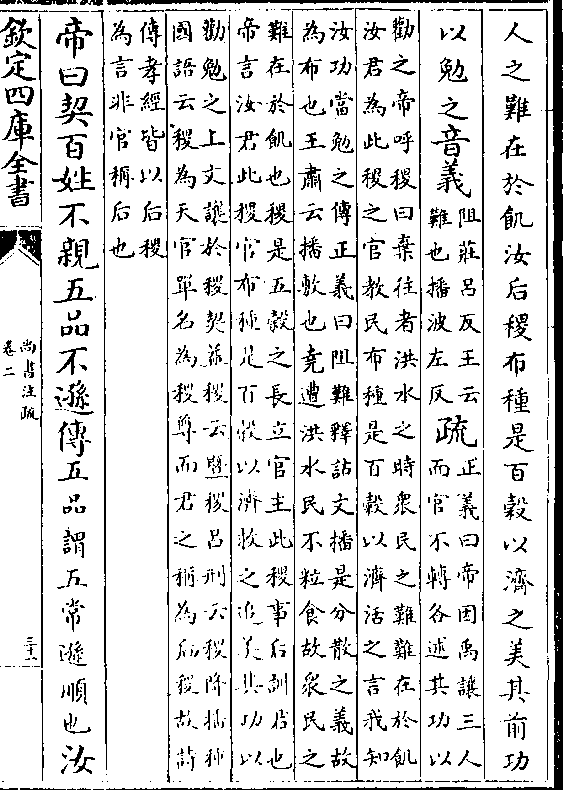 人之難在於飢汝后稷布種是百穀以濟之美其前功
以勉之音義阻莊呂反王云
難也播波左反疏正義曰帝因禹讓三人
而官不轉各述其功以
勸之帝呼稷曰棄往者洪水之時衆民之難難在於飢
汝君為此稷之官教民布種是百穀以濟活之言我知
汝功當勉之傳正義曰阻難釋詁文播是分散之義故
為布也王肅云播敷也堯遭洪水民不粒食故衆民之
難在於飢也稷是五穀之長立官主此稷事后訓君也
帝言汝君此稷官布種是百穀以濟救之追美其功以
勸勉之上文讓於稷契益稷云曁稷呂刑云稷降播種
國語云稷為天官單名為稷尊而君之稱為后稷故詩
傳孝經皆以后稷
為言非官稱后也
帝曰契百姓不親五品不遜傳五品謂五常遜順也汝
欽定四庫全書
尚書注疏
卷二
三十一